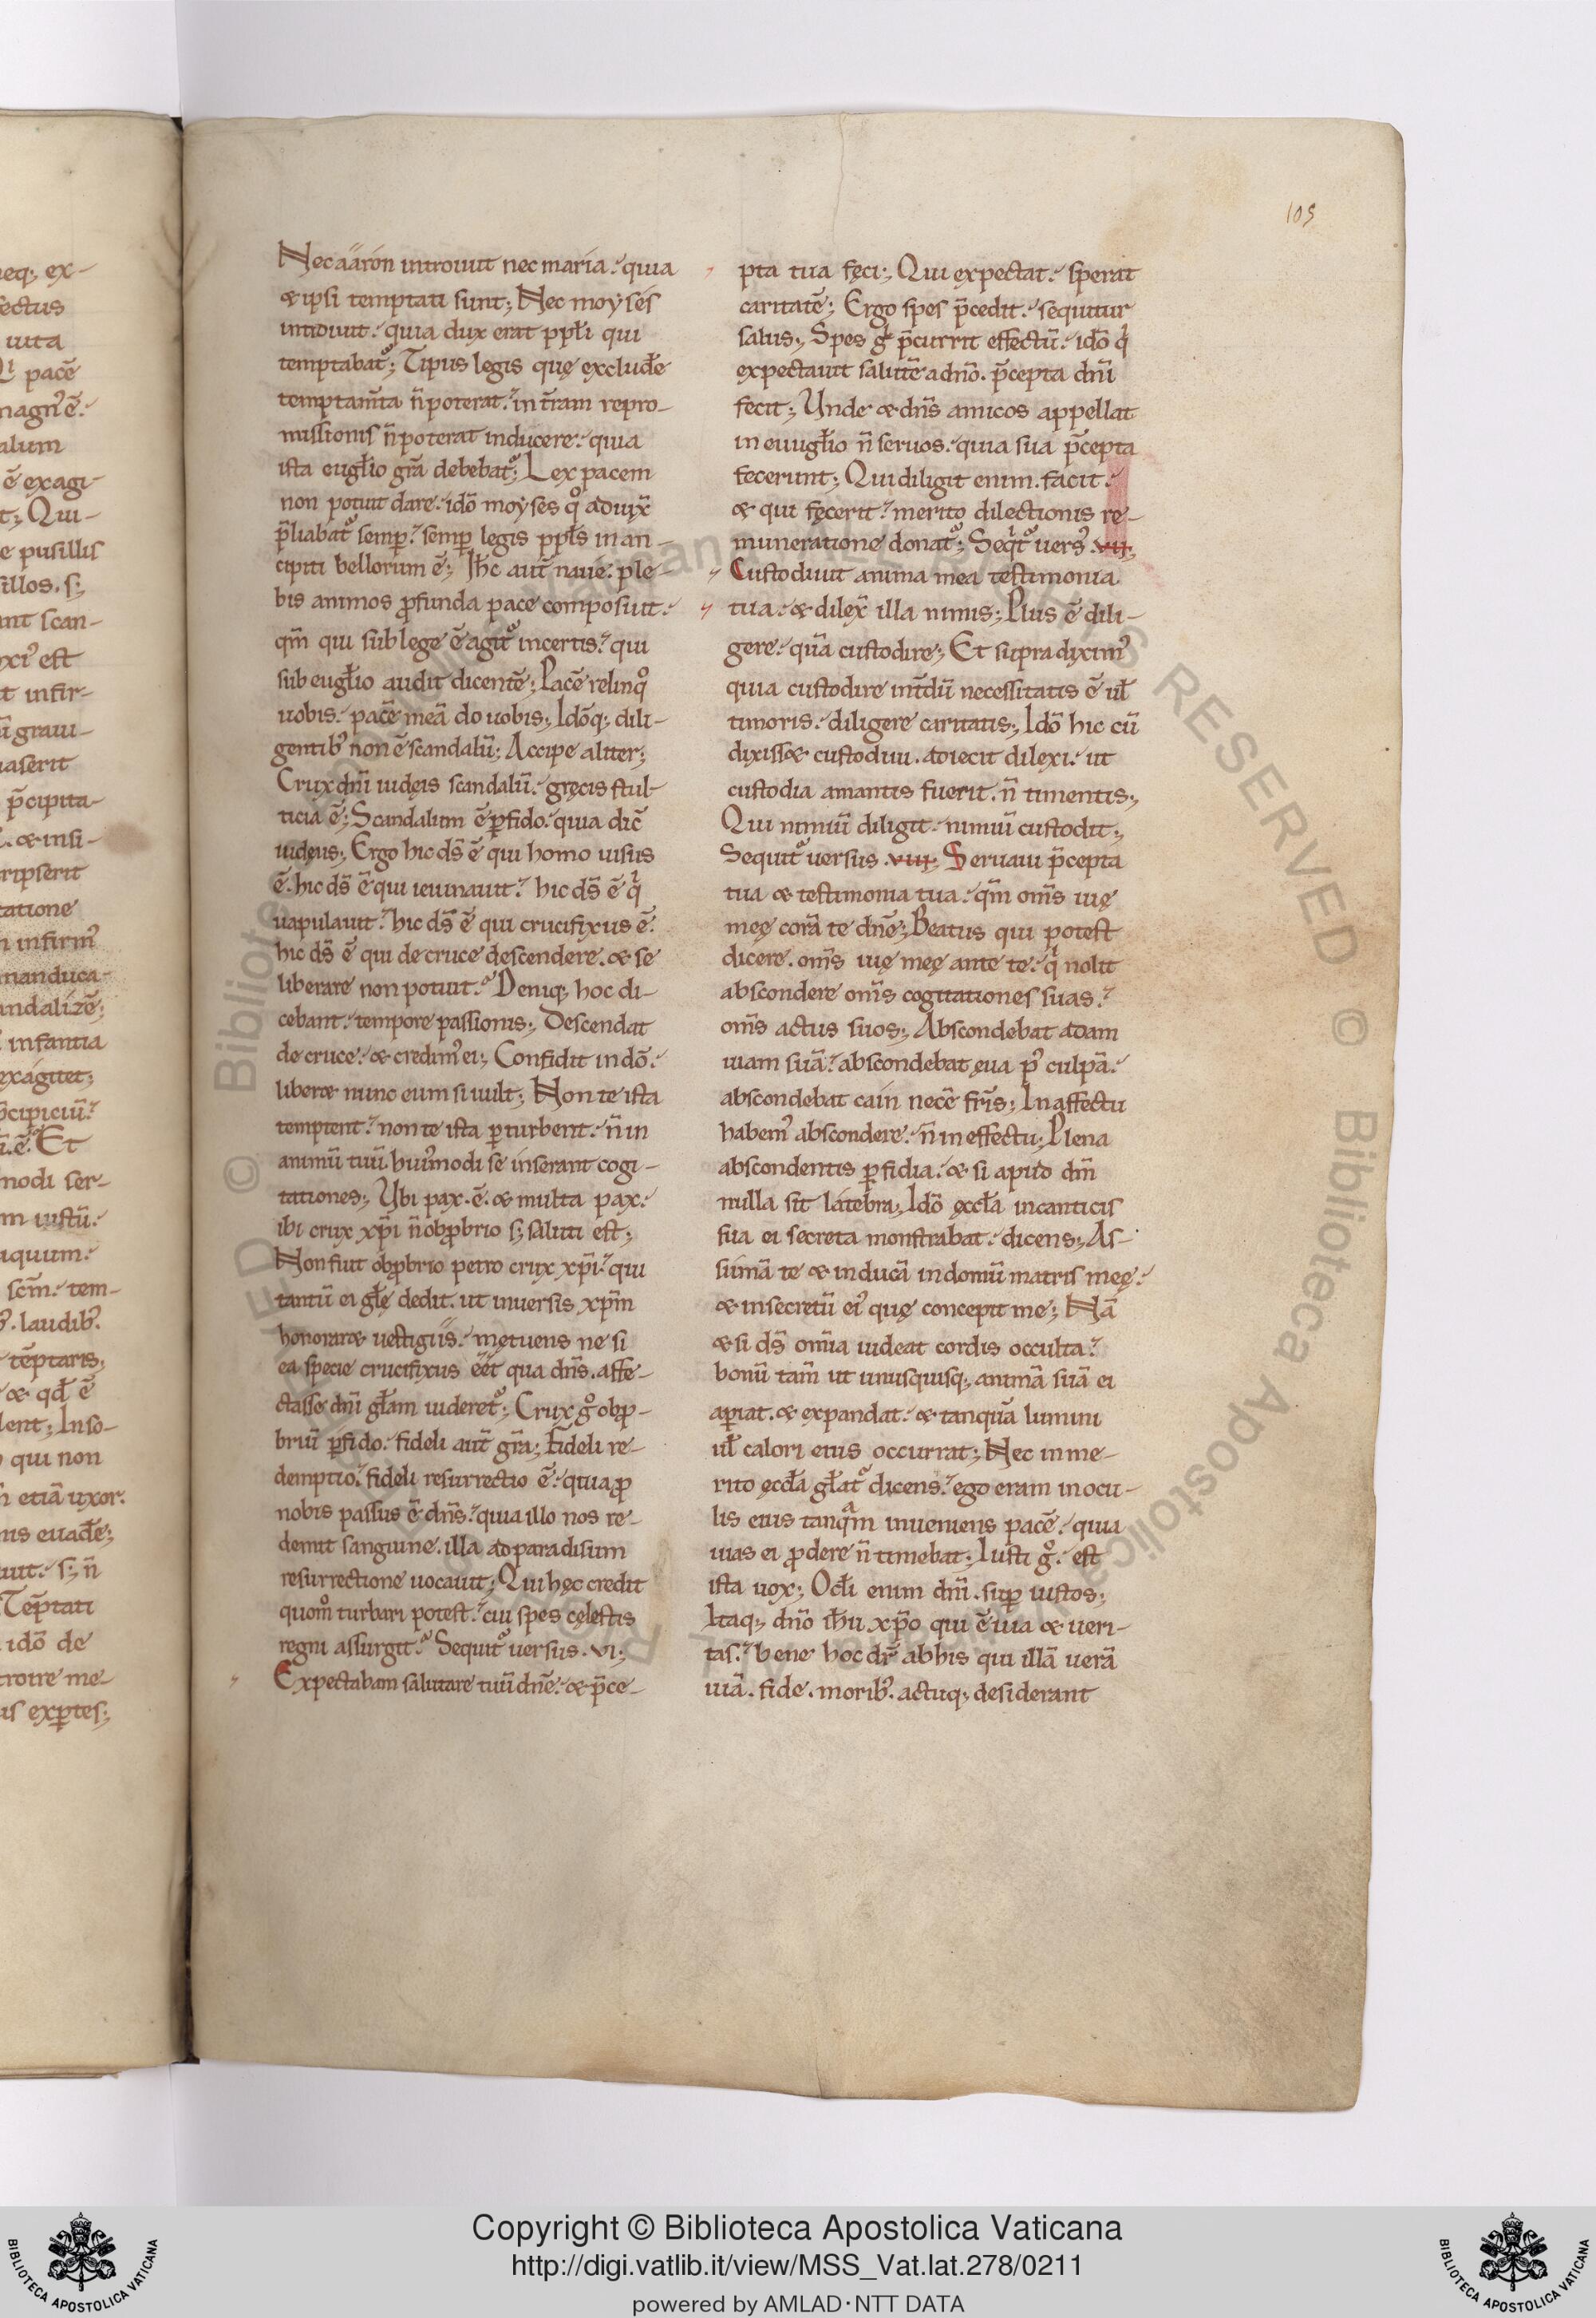 105
Nec aaron introiuit nec maria. quia
& ipsi temptati sunt; Nec moyses
introiuit. quia dux erat ppłi qui
temptabat᷑; Tipus legis quę excludẽ
temptam̃ta ñ poterat. in tr̃am repro-
missionis ñ poterat inducere. quia
ista eugłio gr̃a debebat᷑; Lex pacem
non potuit dare. idõ moyses qͦ aduix̃
p̃liabat᷑ semꝑ. semꝑ legis ppłs in an-
cipiti bellorum ẽ; Ihc̃ aut̃ naue. ple-
bis animos ꝓfunda pace composuit.
qm̃ qui sub lege ẽ agit᷑ incertis. qui
sub eugłio audit dicentẽ; Pacẽ relinqͦ
uobis. pacẽ meã do uobis; Idõq; dili-
gentib' non ẽ scandalũ; Accipe aliter;
Crux dñi iudęis scandalũ. gręcis stul-
ticia ẽ; Scandalum ẽ ꝑfido. quia dic̃
iudęus; Ergo hic ds̃ ẽ qui homo uisus
ẽ. hic ds̃ ẽ qui ieiunauit. hic ds̃ ẽ qⁱ
uapulauit. hic ds̃ ẽ qui crucifixus ẽ.
hic ds̃ ẽ qui de cruce descendere. & se
liberare non potuit. Deniq; hoc di-
cebant. tempore passionis; Descendat
de cruce. & credim' ei; Confidit in dõ.
liber& nunc eum si uult; Non te ista
temptent. non te ista ꝑturbent. ñ in
animũ tuũ hui'modi se inserant cogi-
tationes; Ubi pax. ẽ. & multa pax.
ibi crux xp̃i ñ obꝓbrio s; saluti est;
Non fuit obꝓbrio petro crux xp̃i. qui
tantũ ei głę dedit. ut inuersis xp̃m
honorar& uestigiis. mętuens ne si
ea specie crucifixus eẽt qua dñs. affe-
ctasse dñi głam uideret᷑; Crux gͦ obꝓ-
briũ ꝑfido. fideli aut̃ gr̃a; Fideli re-
demptio. fideli resurrectio ẽ. quia ꝓ
nobis passus ẽ dñs. quia illo nos re-
demit sanguine. illa ad paradisum
resurrectione uocauit; Qui hęc credit
quomͦ turbari potest. cui spes cęlestis
regni assurgit. Sequit᷑ uersus. vi;
Expectabam salutare tuũ dñe. & p̃ce-
pta tua fęci; Qui expectat. sperat
caritatẽ; Ergo spes p̃cedit. sequitur
salus; Spes gͦ p̃currit effectũ. idõ qⁱ
expectauit salutẽ a dño. p̃cepta dñi
fecit; Unde & dñs amicos appellat
in euugłio ñ seruos. quia sua p̃cepta
fecerunt; Qui diligit enim. facit.
& qui fęcerit. merito dilectionis re-
muneratione donat᷑; Seqⁱt᷑ uers'. vii;
Custodiuit anima mea testimonia
tua. & dilex̃ illa nimis; Plus ẽ dili-
gere. quã custodire; Et supra dixim'
quia custodire int̃dũ necessitatis ẽ uł
timoris. diligere caritatis; Idõ hic cũ
dixiss& custodiui. adiecit dilexi. ut
custodia amantis fuerit. ñ timentis;
Qui nimiũ diligit. nimiũ custodit;
Sequit᷑ uersus. viii; Seruaui p̃cepta
tua & testimonia tua. qm̃ om̃s uię
meę corã te dñe; Beatus qui potest
dicere. om̃s uię meę ante te. qⁱ nolit
abscondere om̃s cogitationes suas.
om̃s actus suos; Abscondebat adam
uiam suã. abscondebat ęua p' culpã.
abscondebat cain necẽ fr̃is; In affectu
habem' abscondere. ñ in effectu; Plena
abscondentis ꝑfidia. & si apud dm̃
nulla sit latebra; Idõ ęccła in canticis
sua ei secreta monstrabat. dicens; As-
sumã te & inducã in domũ matris meę.
& in secretũ ei' quę concepit me; Nã
& si ds̃ omĩa uideat cordis occulta.
bonũ tam̃ ut unusquisq; animã suã ei
aꝑiat. & expandat. & tanquã lumini
uł calori eius occurrat; Nec inme-
rito ęccła głat᷑ dicens. ego eram in ocu-
lis eius tanqᵃm inueniens pacẽ. quia
uias ei ꝓdere ñ timebat; Iusti gͦ. est
ista uox; Ocłi enim dñi. suꝑ iustos;
Itaq; dño ih̃u xp̃o qui ẽ uia & ueri-
tas. bene hoc dr̃ ab his qui illã uerã
uiã. fide. morib'. actuq; desiderant
Copyright © Biblioteca Apostolica Vaticana
http://digi.vatlib.it/view/MSS_Vat.lat.278/0211
powered by AMLAD·NTT DATA
BIBLIOTECA APOSTOLICA VATICANA
BIBLIOTECA APOSTOLICA VATICANA